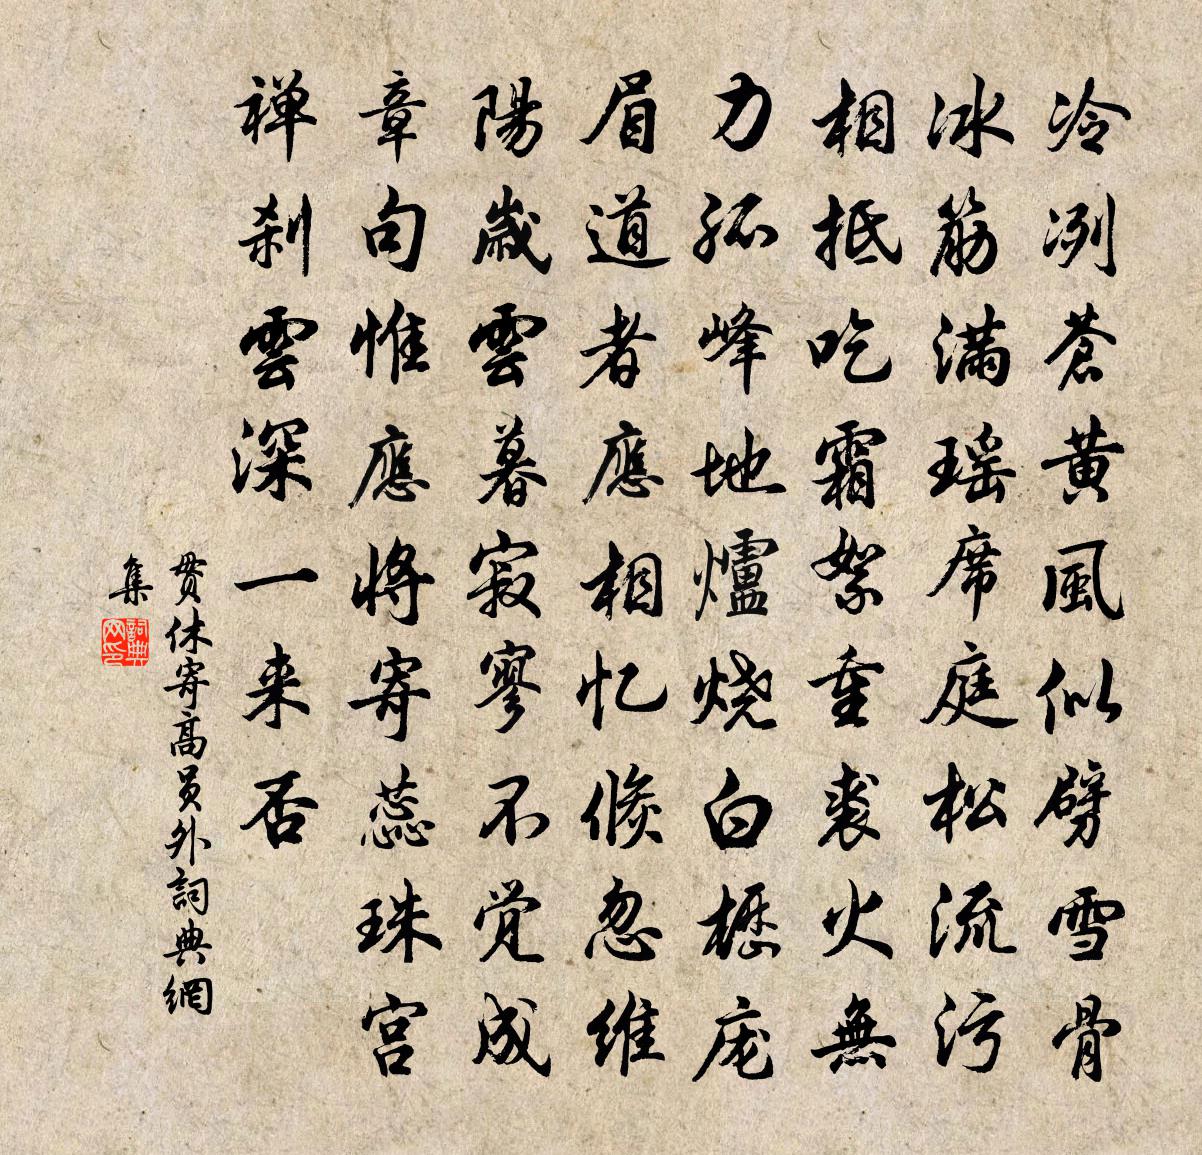 冷冽蒼黃風似劈雪骨
冰筋滿瑶席庭松流污
相抵吃霜絮重裘火無
力孤峰地爐烧白櫪庞
眉道者應相忆倏忽维
陽嵗雲暮寂寥不觉成
章句惟應將寄蕊珠宫
禅刹雲深一来否
贯休寄高员外詞典網
集
詞典网印